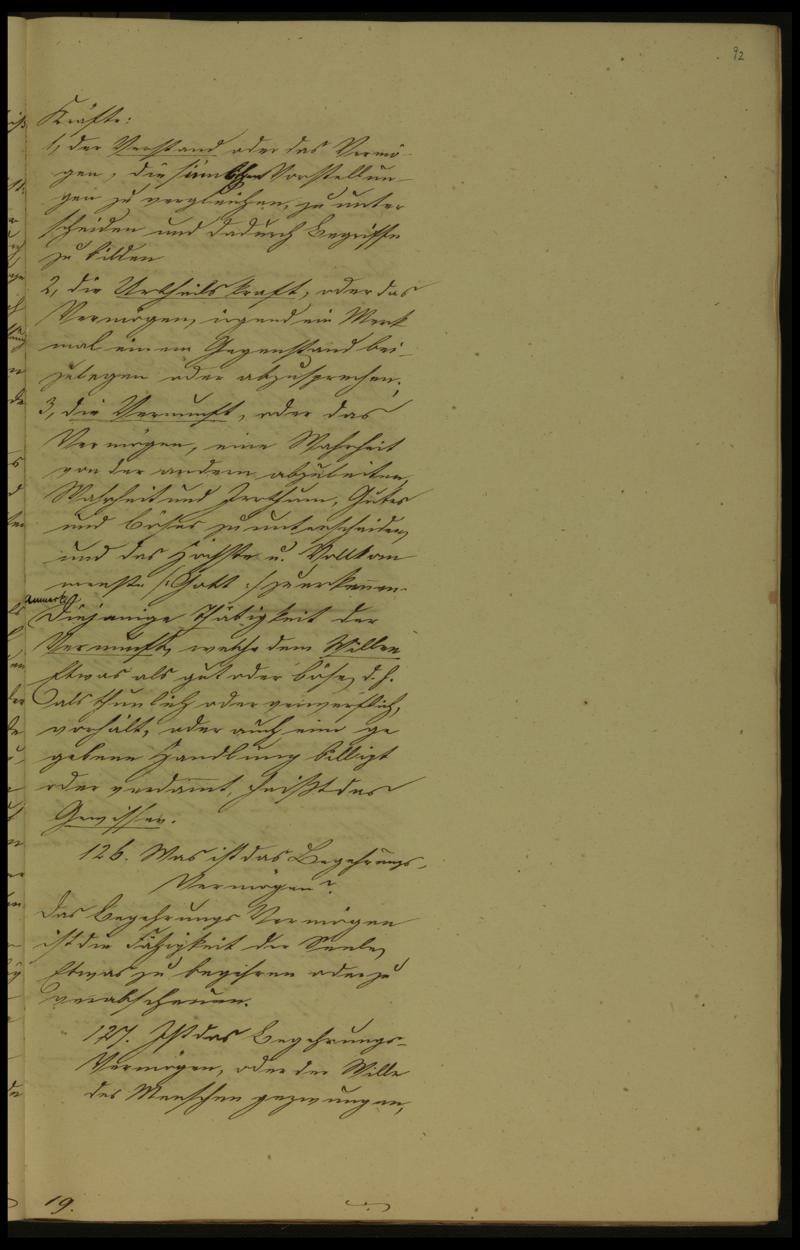 92
Kräfte:
1, der Verstand oder das Vermö-
gen, die sinnlichen Vorstellun-
gen zu vergleichen, zu unter
scheiden und dadurch Begriffe
zu bilden
2, die Urtheilskraft, oder das
Vermögen, irgend ein Merk
mal einem Gegenstand bei-
zulegen oder abzusprechen;
3, die Vernunft, oder das
Vermögen, eine Wahrheit
von der andern abzuleiten,
Wahrheit und Irrthum, Gutes
und Böses zu unterscheiden,
und das Höchste u. Vollkom
menste /: Gott :/ zu erkennen.
Anmerk.
Diejenige Thätigkeit der
Vernunft, welche dem Willen
Etwas als gut oder böse, d. h.
als thunlich oder verwerflich,
vorhält, oder auch eine ge
gebene Handlung billigt
oder verdammt, heißt das
Gewissen.
126. Was ist das Begehrungs-
Vermögen?
Das Begehrungs Vermögen
ist die Fähigkeit der Seele,
Etwas zu begehren oder zu
verabscheuen.
127. Ist das Begehrungs-
Vermögen, oder der Wille
des Menschen gezwungen,
19.